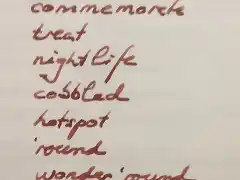 commemorate
treat
nightlife
cobbled
hotspot
'round
wonder 'round